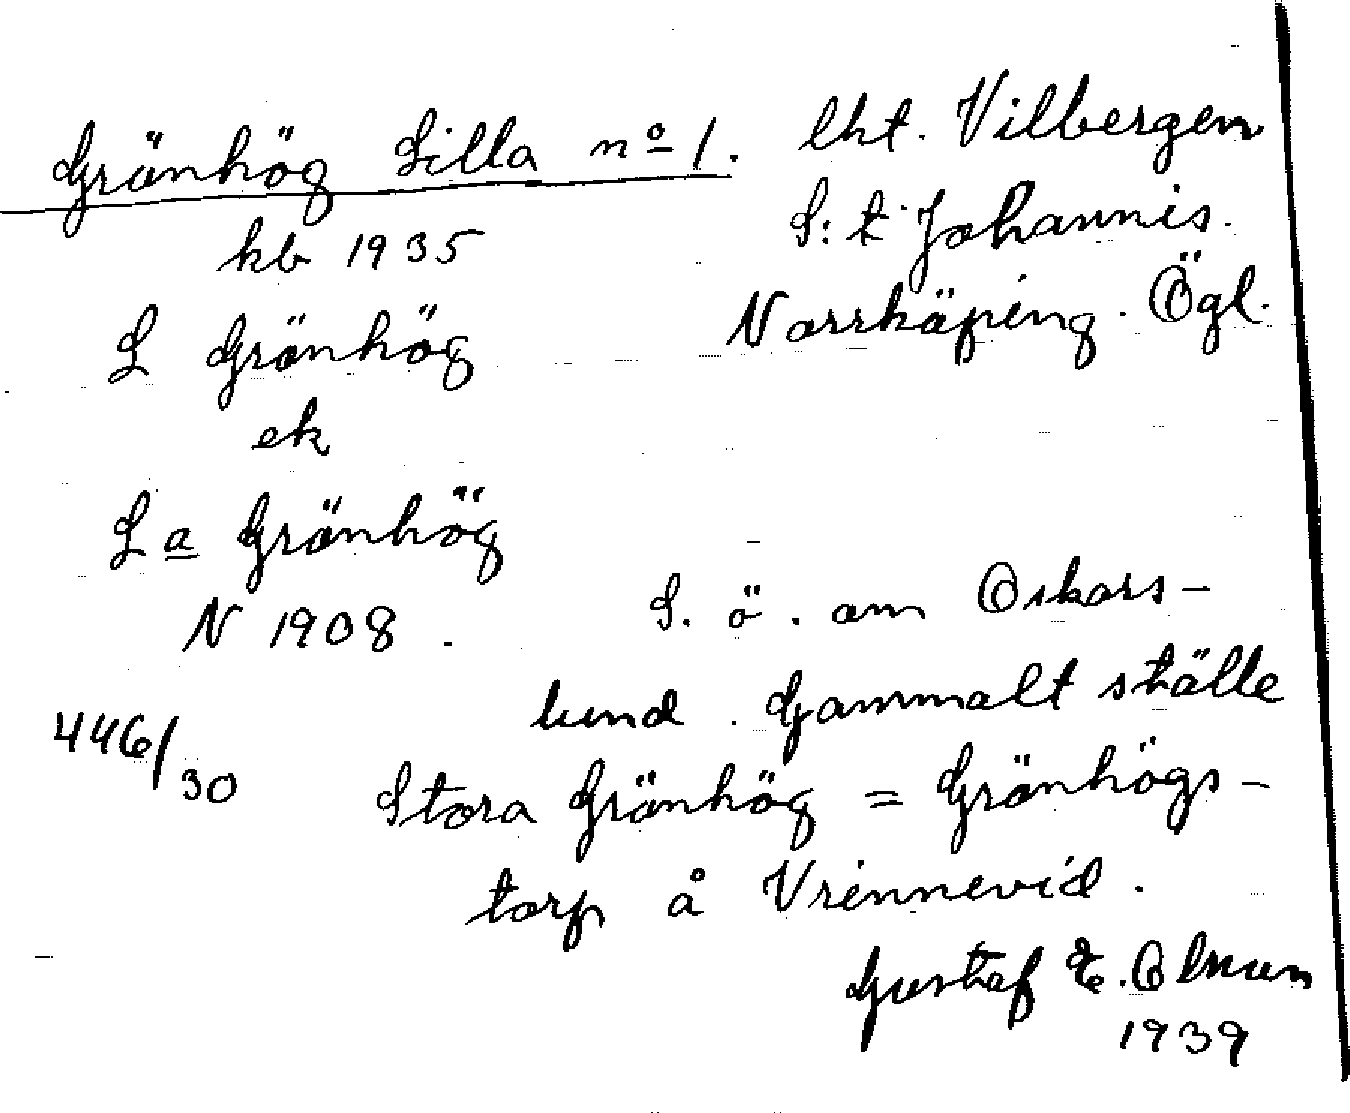 Grönhög Lilla nº 1. lht. Vilbergen
kb 1935
S:t Johannis.
Norrköping. Ögl.
L Grönhög
ek
La Grönhög
N 1908.
S. ö. om Oskars-
lund. Gammalt ställe
446/30
Stora Grönhög = Grönhögs-
torp å Vrinnevid.
Gustaf E.
1939